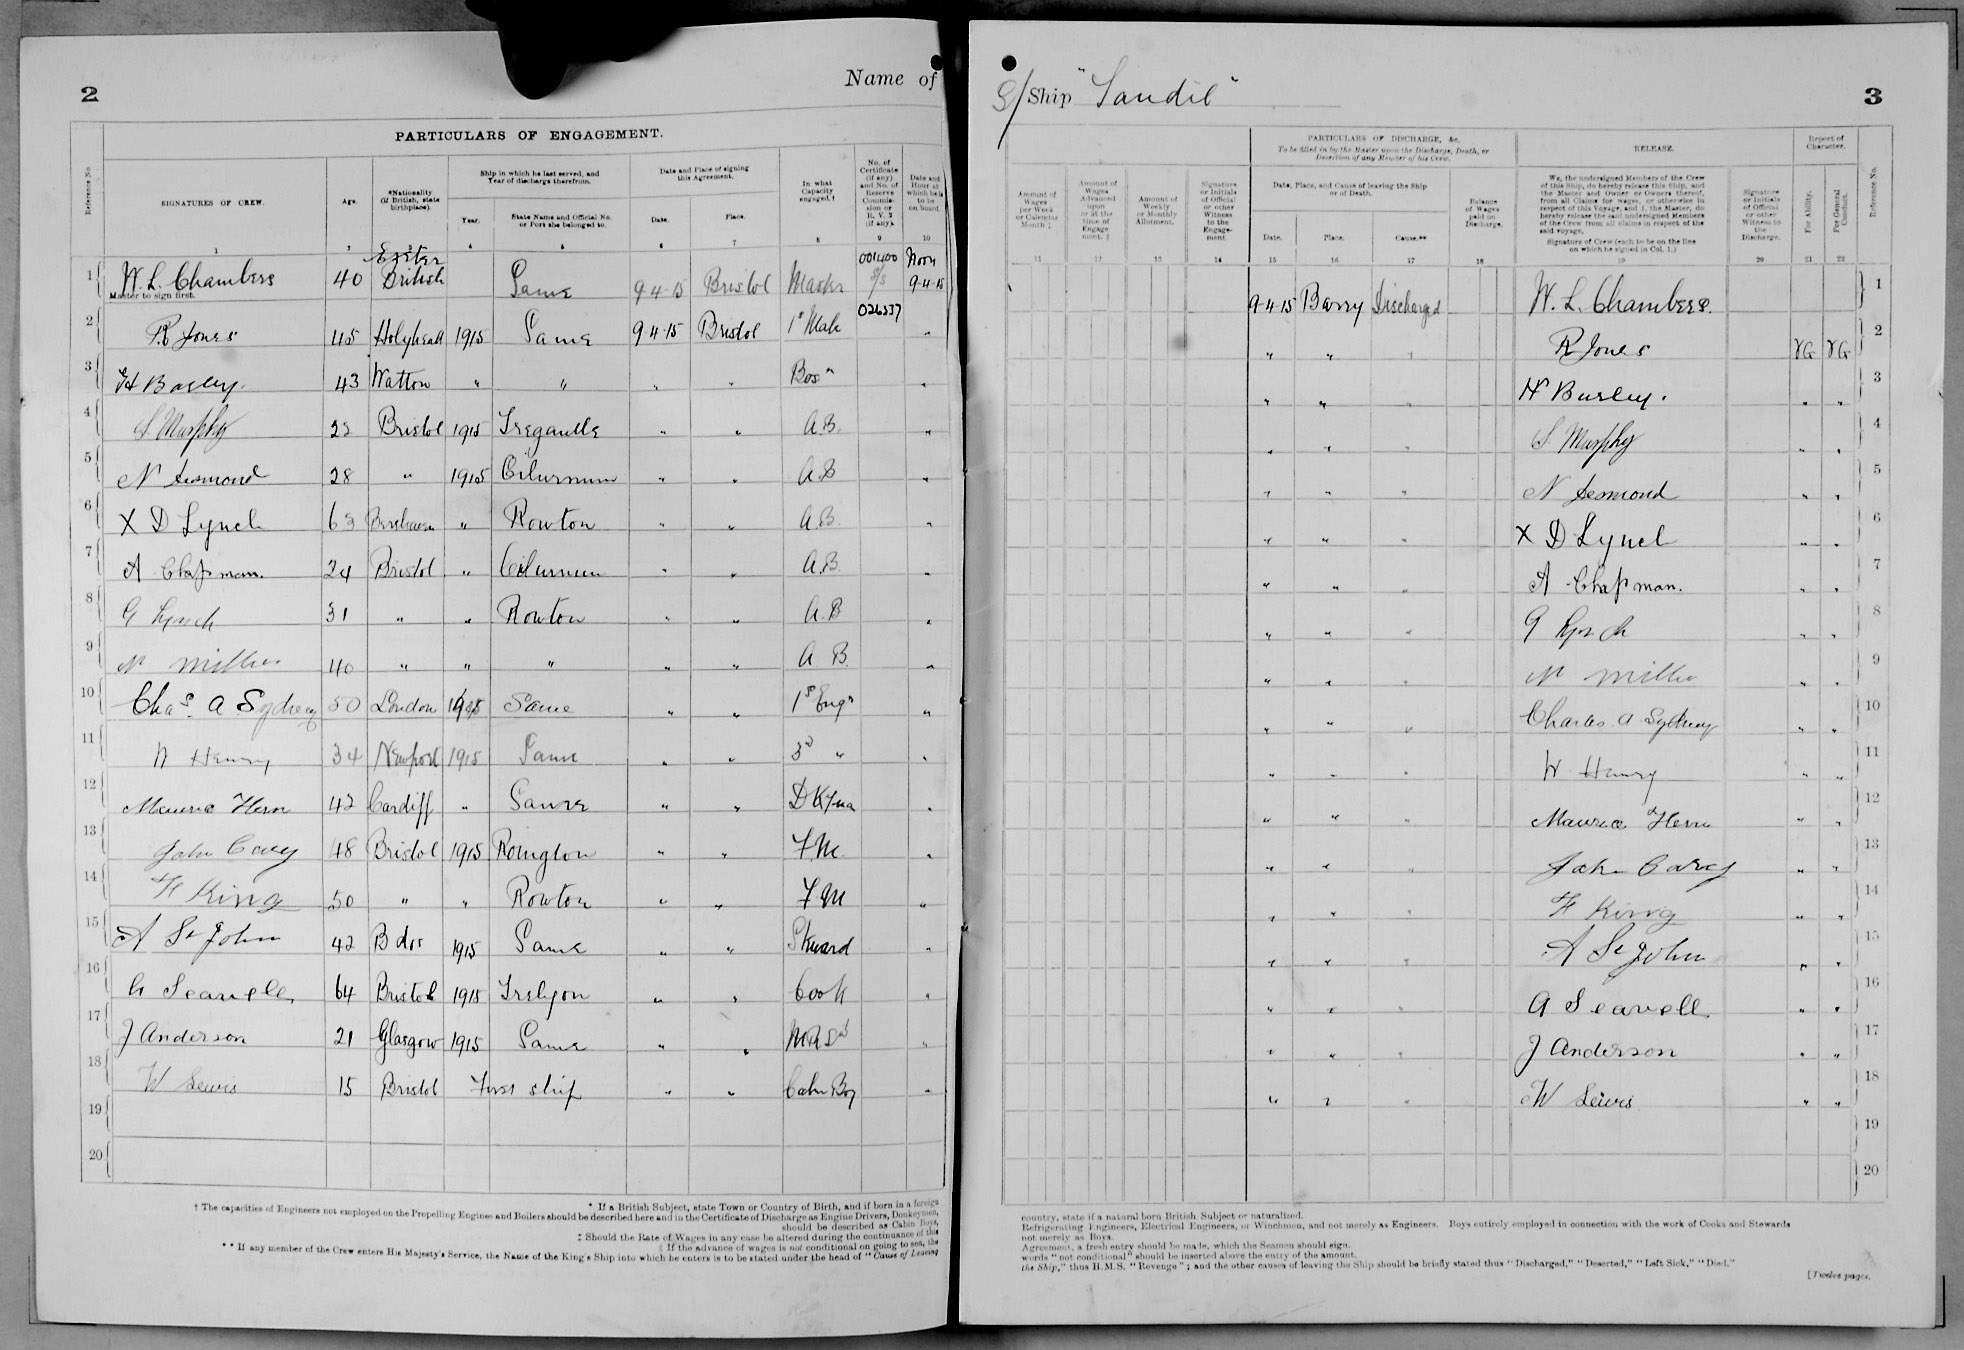 2
Name of
PARTICULARS OF ENGAGEMENT.
Reference No.
SIGNATURES OF CREW.
Age.
*Nationality (if British, state birthplace).
Ship in which he last served, and Year of discharge therefrom.
Year.
State Name and Official No. or Port she belonged to.
Date and Place of signing this Agreement.
Date.
Place.
In what Capacity engaged.†
No. of Certificate (if any) and No. of Reserve Commission or R.V.2 (if any).
Date and Hour at which he is to be on board.
1 2 3 4 5 6 7 8 9 10
1 W. L. Chambers 40 Exeter British Same 9-4-15 Bristol Master 001400 S/S Noon 9-4-15
Master to sign first.
2 R Jones 45 Holyhead 1915 Same 9-4-15 Bristol 1st Mate 026537 "
3 H 43 Watton " " " " Bosn "
4 S Murphy Bristol 1915 " " A.B. "
5 N Desmond 28 " 1915 Cilurnum " " A B "
6 X D Lynch " Rowton " " A.B. "
7 A Chapman. 24 Bristol " Cilurnum " " A.B. "
8 G Lynch 31 " " Rowton " " A.B "
9 40 " " " " " A B. "
10 Chas. A Sydney 50 London Same " " 1st Engr "
11 W Henry 34 Newport 1915 Same " " 3rd " "
12 Maurice Hern 42 Cardiff " Same " " "
13 John Carey 48 Bristol 1915 " " F.M. "
14 F King 50 " " Rowton " " F M "
15 A St John 42 Bdos 1915 Same " " Steward "
16 64 Bristol 1915 " " Cook "
17 J Anderson 21 Glasgow 1915 Same " " "
18 W Lewis 15 Bristol First ship " " Cabin Boy "
19
20
* If a British Subject, state Town or Country of Birth, and if born in a foreign
† The capacities of Engineers not employed on the Propelling Engines and Boilers should be described here and in the Certificate of Discharge as Engine Drivers, Donkeymen,
should be described as Cabin Boys,
‡ Should the Rate of Wages in any case be altered during the continuance of this
| If the advance of wages is not conditional on going to sea, the
** If any member of the Crew enters His Majesty's Service, the Name of the King's Ship into which he enters is to be stated under the head of "Cause of Leaving
S/Ship "Sandil"
3
Amount of Wages per Week or Calendar Month ‡
Amount of Wages Advanced upon or at the time of Engagement. ‡
Amount of Weekly or Monthly Allotment.
Signature or Initials of Official or other Witness to the Engagement
PARTICULARS OF DISCHARGE, &c.
To be filled in by the Master upon the Discharge, Death, or Desertion of any Member of his Crew.
Date, Place, and Cause of leaving the Ship or of Death.
Date.
Place.
Cause.**
Balance of Wages paid on Discharge.
RELEASE.
We, the undersigned Members of the Crew of this Ship, do hereby release this Ship, and the Master and Owner or Owners thereof, from all Claims for wages, or otherwise in respect of this Voyage, and I, the Master, do hereby release the said undersigned Members of the Crew from all claims in respect of the said voyage.
Signature of Crew (each to be on the line on which he signed in Col. 1.)
Signature or Initials of Official or other Witness to the Discharge.
Report of Character.
For Ability.
For General Conduct.
Reference No.
11 12 13 14 15 16 17 18 19 20 21 22
9-4-15 Barry Discharged W. L. Chambers. 1
" " " R Jones VG VG 2
" " " H " " 3
" " " S Murphy " " 4
" " " N Desmond " " 5
" " " X D Lynch " " 6
" " " A Chapman. " " 7
" " " G Lynch " " 8
" " " " " 9
" " " Charles A Sydney " " 10
" " " W Henry " " 11
" " " Maurice Hern " " 12
" " " John Carey " " 13
" " " F King " " 14
" " " A St John " " 15
" " " " " 16
" " " J Anderson " " 17
" " " W Lewis " " 18
19
20
country, state if a natural born British Subject or naturalized.
Refrigerating Engineers, Electrical Engineers, or Winchmen, and not merely as Engineers. Boys entirely employed in connection with the work of Cooks and Stewards
not merely as Boys.
Agreement, a fresh entry should be made, which the Seamen should sign.
words "not conditional" should be inserted above the entry of the amount.
the Ship," thus H.M.S. "Revenge"; and the other causes of leaving the Ship should be briefly stated thus "Discharged," "Deserted," "Left Sick," "Died."
[Twelve pages.